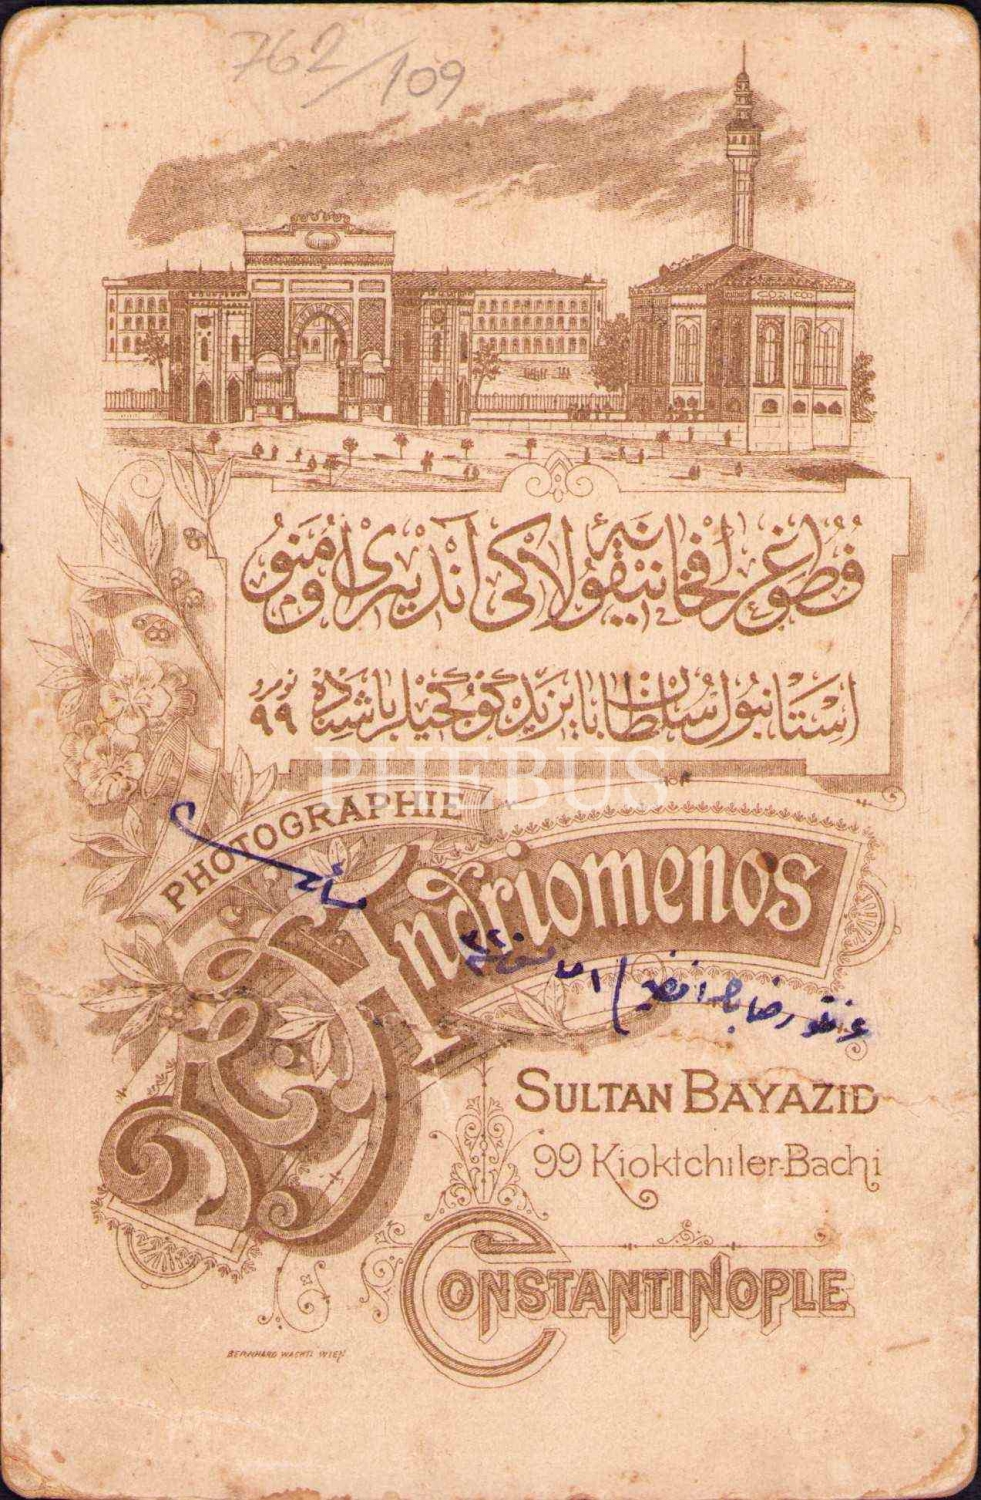 762/109
فطوغرافخانۀ نيقولاكى اندريومنو
استانبول سلطان بايزيد كوكجيلر باشنده نومرو ٩٩
PHEBUS
PHOTOGRAPHIE
N. Andriomenos
SULTAN BAYAZID
99 Kioktchiler-Bachi
CONSTANTINOPLE
BERNHARD WACHTL WIEN